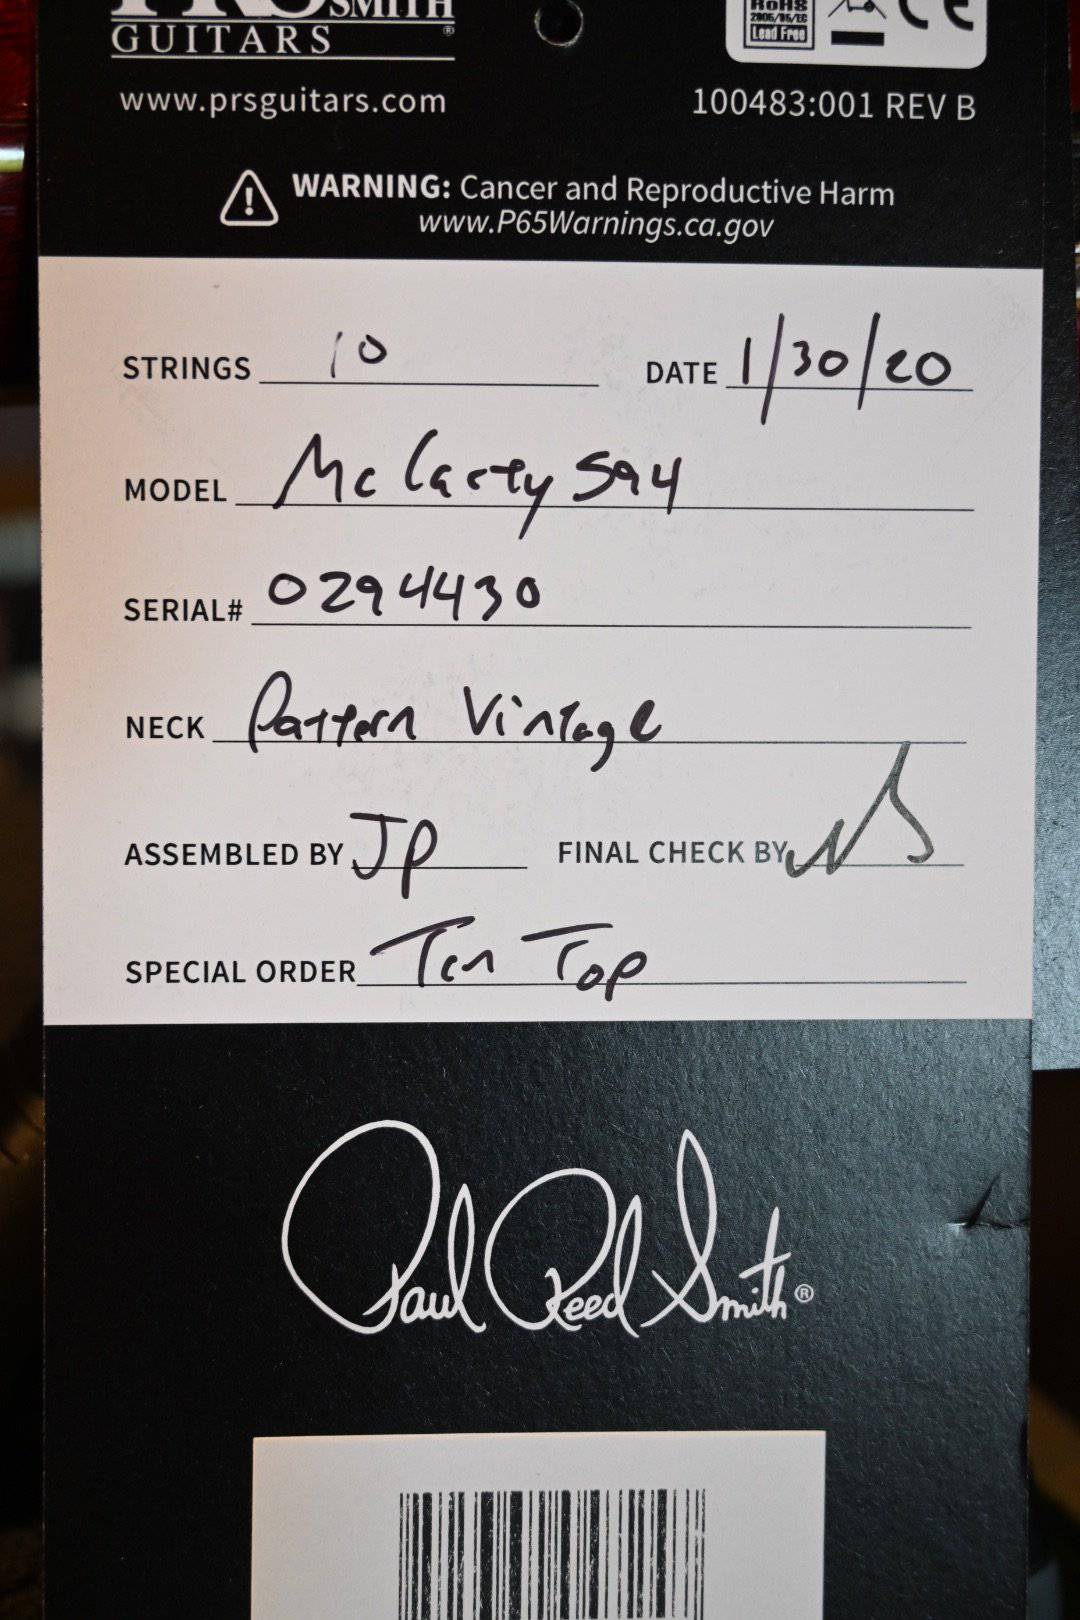 PRS SMITH
GUITARS ®
www.prsguitars.com
RoHS
2005/95/EC
Lead Free
CE
100483:001 REV B
WARNING: Cancer and Reproductive Harm
www.P65Warnings.ca.gov
STRINGS 10 DATE 1/30/20
MODEL McCarty 594
SERIAL# 0294430
NECK Pattern Vintage
ASSEMBLED BY JP FINAL CHECK BY
SPECIAL ORDER Ten Top
Paul Reed Smith®